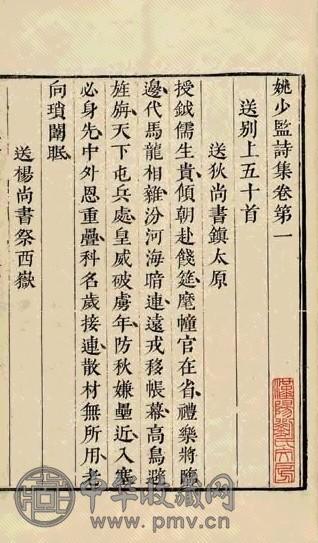 姚少監詩集卷第一
送别上五十首
送狄尚書鎮太原
授鉞儒生貴傾朝赴餞筵麾幢官在省禮樂將臨
邊代馬龍相雜汾河海暗連遠戎移帳幕高鳥避
旌旃天下屯兵處皇威破虜年防秋嫌壘近入塞
必身先中外恩重疊科名歲接連散材無所用老
向瑣闈眠
送楊尚書祭西嶽
漢陽劉氏
中华收藏网
www.pmv.cn